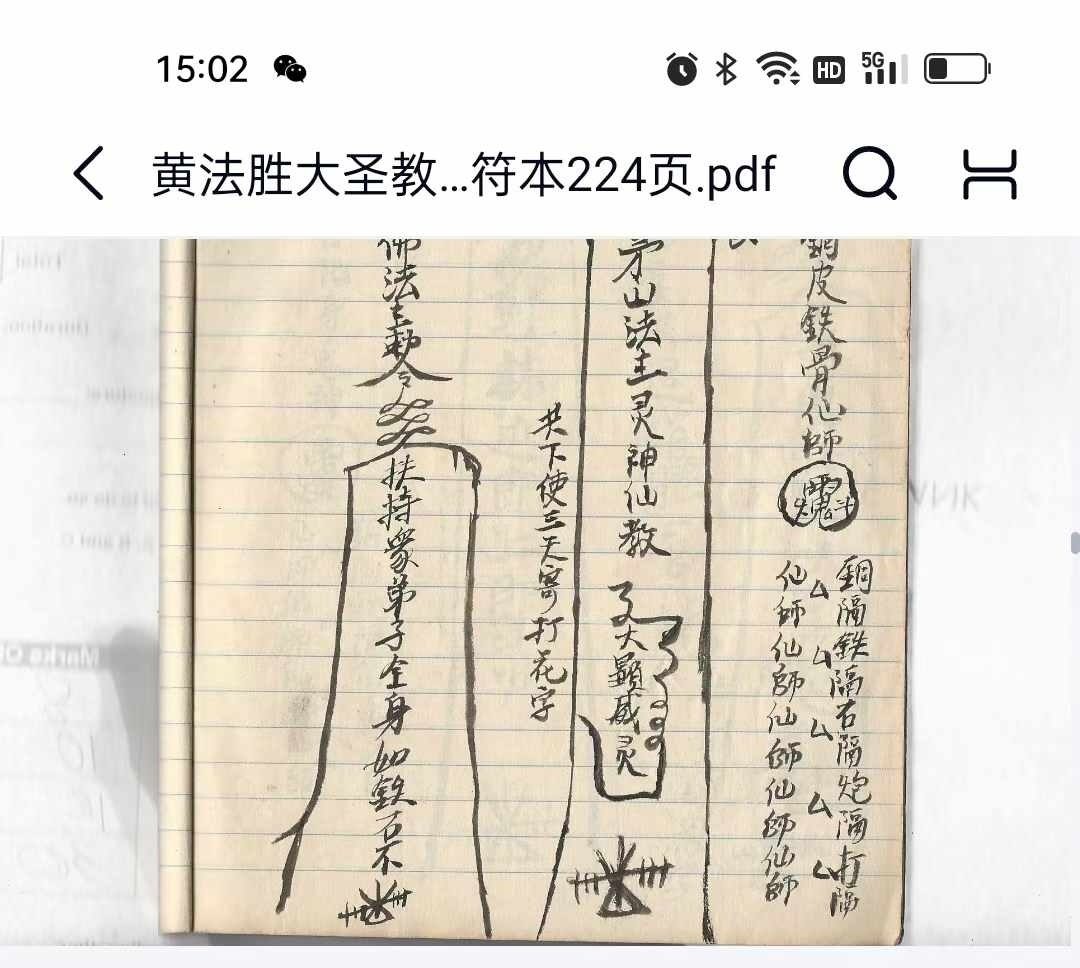 15:02
HD
5G
黄法胜大圣教...符本224页.pdf
銅皮鉄骨仙師
銅隔鉄隔石隔炮隔打隔
仙師仙師仙師仙師仙師
茅山法主灵神仙教
大顯威灵
共下使三天寄打花字
佛法主勅令
扶持眾弟子全身如鉄石不